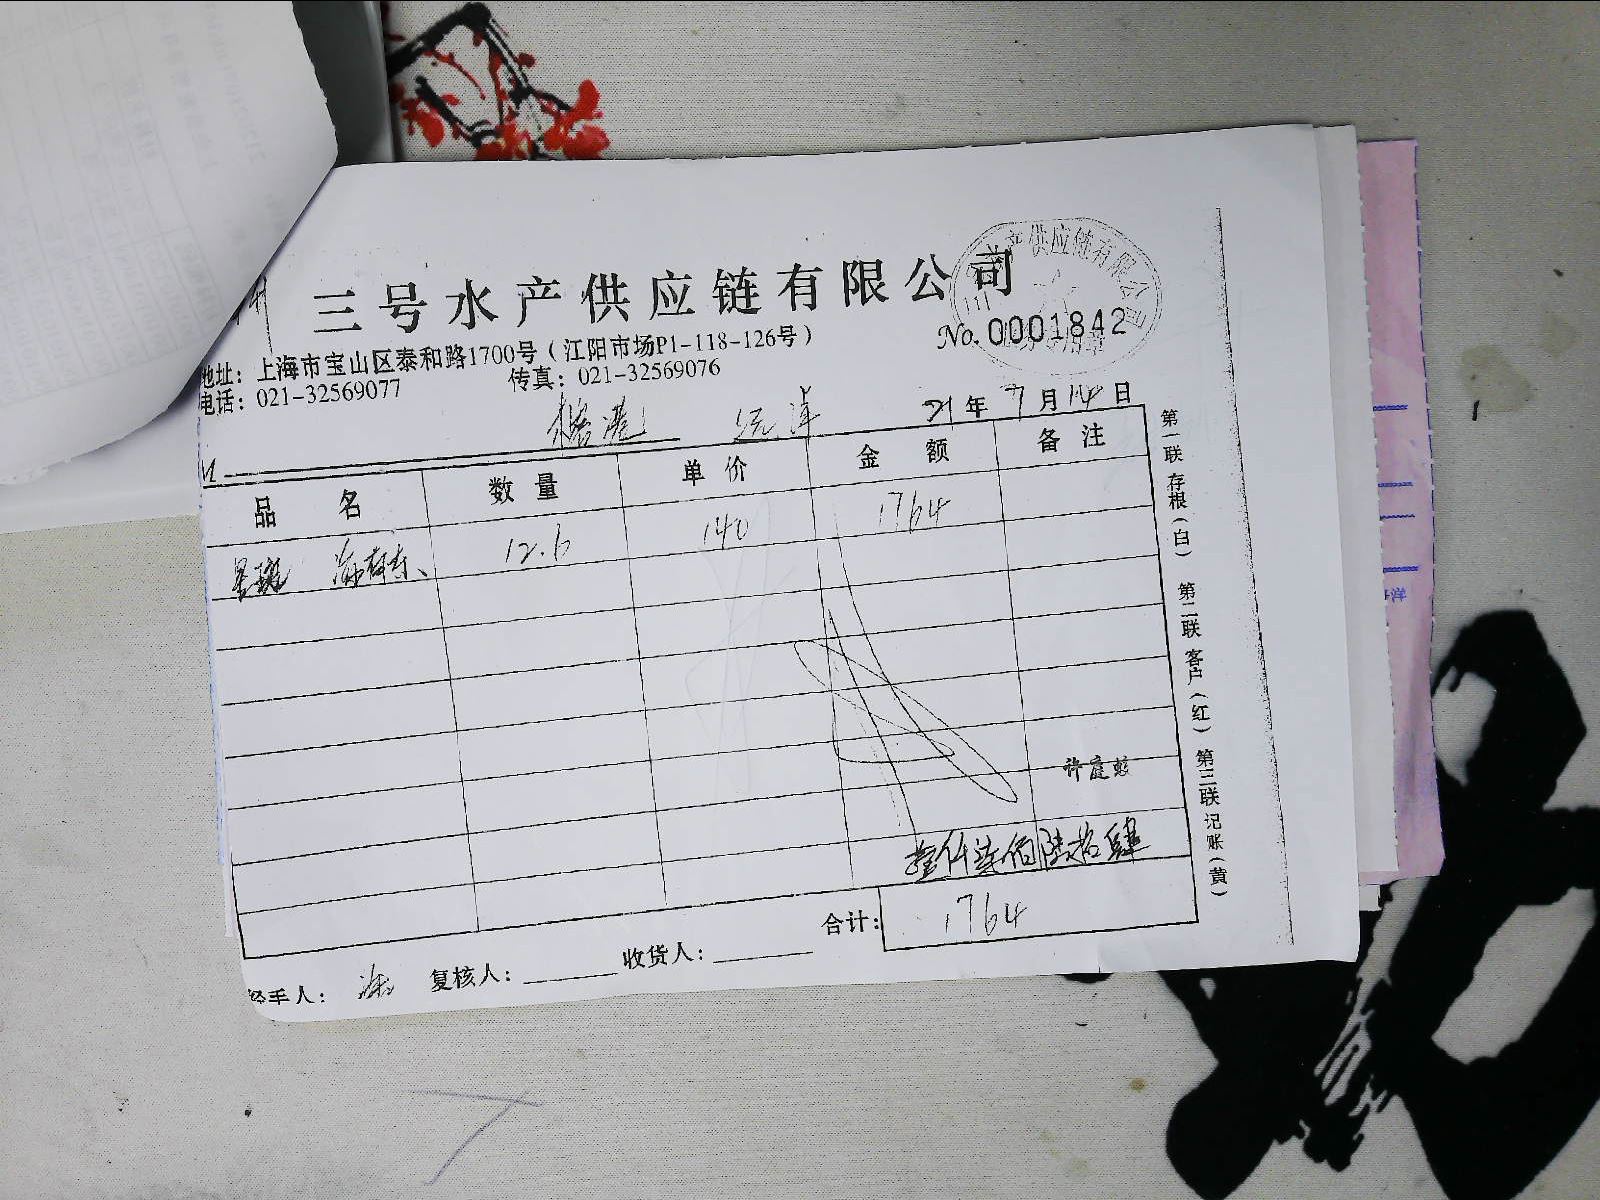 三号水产供应链有限公司
产供应链有限公司
No. 0001842
地址：上海市宝山区泰和路1700号（江阳市场P1-118-126号）
电话：021-32569077 传真：021-32569076
21年 7月 14日
品 名 数 量 单 价 金 额 备 注
星斑 12.6 140 1764
许庭蛟
壹仟柒佰陆拾肆
合计： 1764
经手人： 复核人： 收货人：
第一联 存根（白） 第二联 客户（红） 第三联 记账（黄）